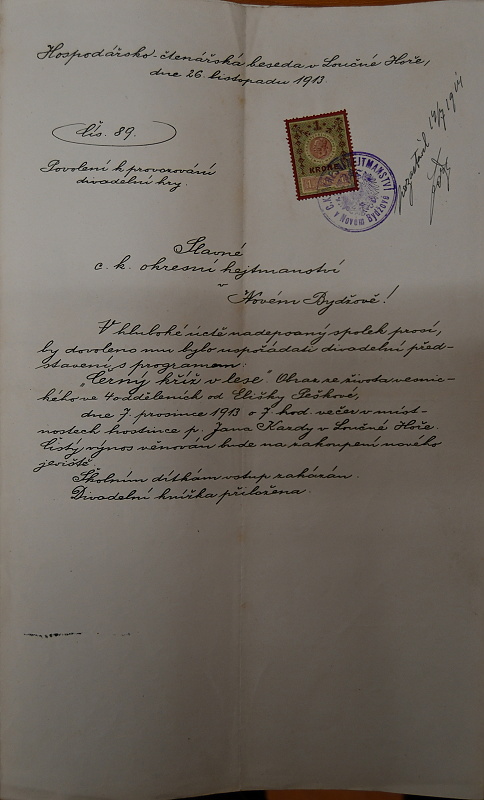 Hospodářsko-čtenářská beseda v Loučné Hoře,
dne 26. listopadu 1913.
čís. 89.
Povolení k provozování
divadelní hry.
1
KRONE
C.K. HEJTMANSTVÍ
v Novém Bydžově
Slavné
c. k. okresní hejtmanství
v
Novém Bydžově!
V hluboké úctě nadepsaný spolek prosí,
by dovoleno mu bylo uspořádati divadelní před-
stavení s programem:
„Černý kříž v lese". Obraz ze života vesnic-
kého ve 4 odděleních od Elišky Peškové,
dne 7. prosince 1913 o 7. hod. večer v míst-
nostech hostince p. Jana Kazdy v Loučné Hoře.
Čistý výnos věnován bude na zakoupení nového
jeviště.
Školním dítkám vstup zakázán.
Divadelní knížka přiložena.